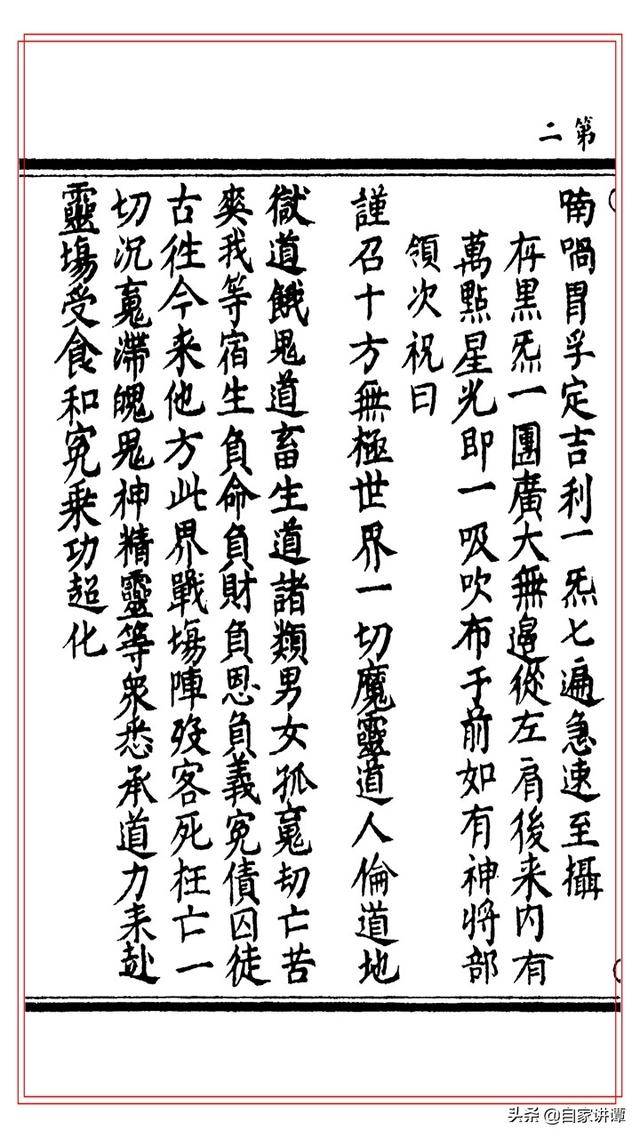 第二
喃喎胃孚定吉利一炁七遍急速至攝
存黒炁一團廣大無邉從左肩後来内有
萬點星光即一吸吹布于前如有神將部
領次祝曰
謹召十方無極世界一切魔靈道人倫道地
獄道餓鬼道畜生道諸類男女孤䰟刧亡苦
爽我等宿生負命負財負恩負義寃債囚徒
古徃今来他方此界戰塲陣殁客死枉亡一
切沉䰟滯魄鬼神精靈等衆悉承道力来赴
靈塲受食和寃乗功超化
头条 @自家讲谭